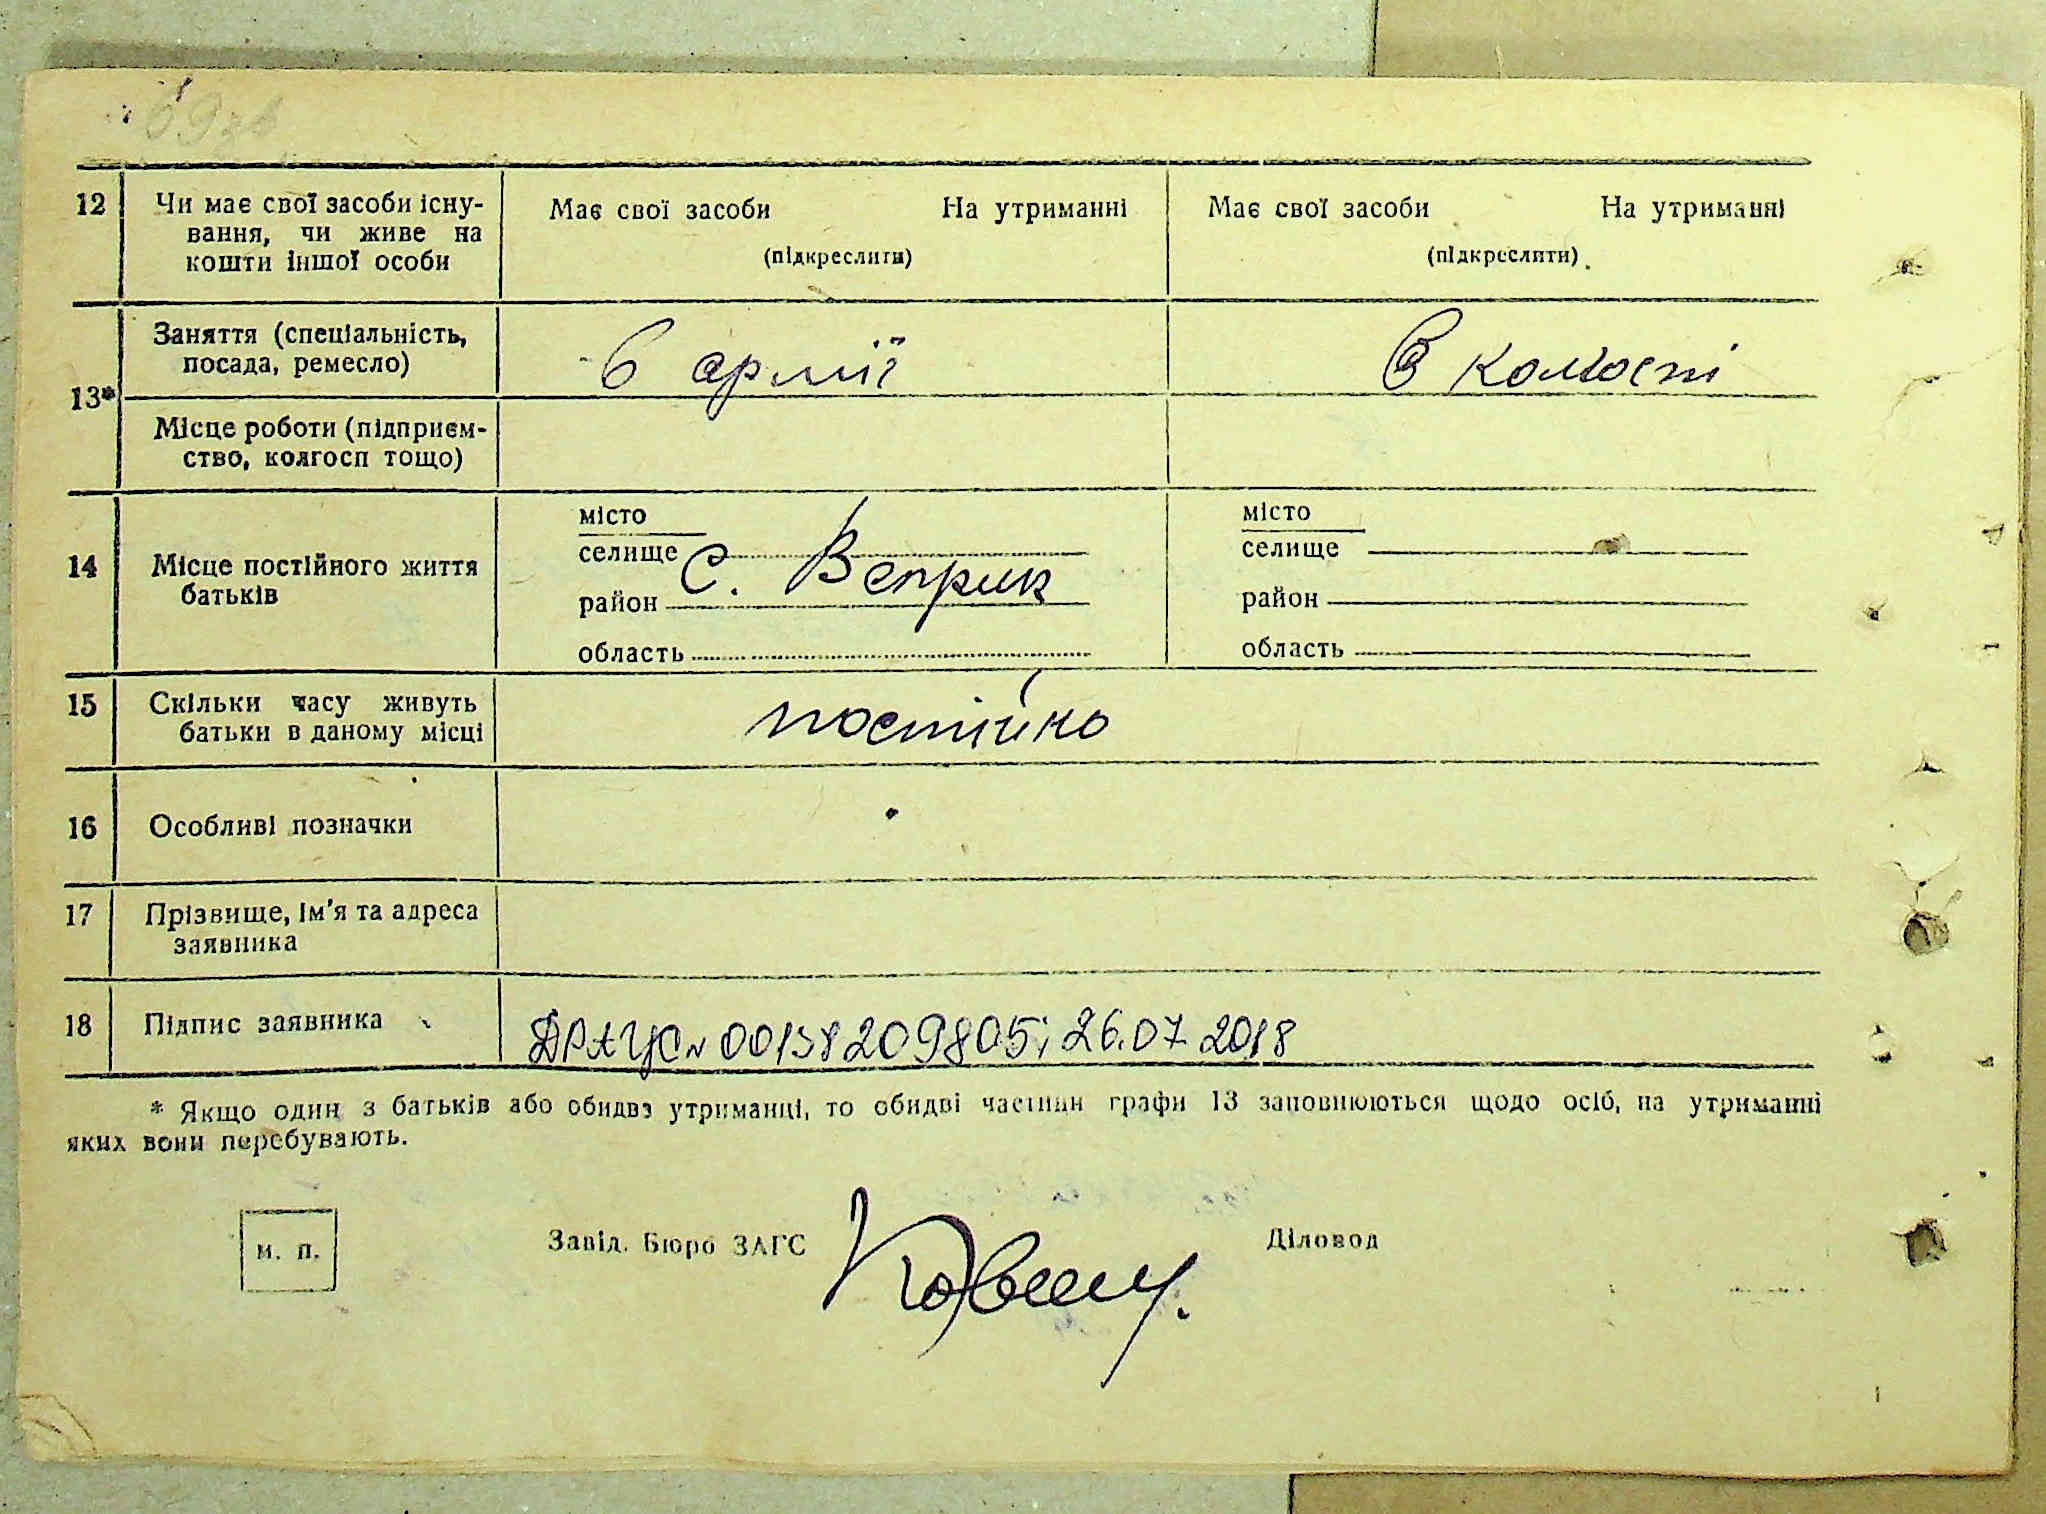 69зв
12 Чи має свої засоби існу- Має свої засоби На утриманні Має свої засоби На утриманні
вання, чи живе на
кошти іншої особи (підкреслити) (підкреслити)
Заняття (спеціальність, в армії В колгоспі
посада, ремесло)
13*
Місце роботи (підприєм-
ство, колгосп тощо)
місто місто
селище селище
14 Місце постійного життя с. Веприк
батьків район район
область область
15 Скільки часу живуть постійно
батьки в даному місці
16 Особливі позначки
17 Прізвище, ім'я та адреса
заявника
18 Підпис заявника ДРАЦС № 00138209805; 26.07.2018
* Якщо один з батьків або обидва утриманці, то обидві частини графи 13 заповнюються щодо осіб, на утриманні
яких вони перебувають.
м. п. Завід. Бюро ЗАГС Діловод